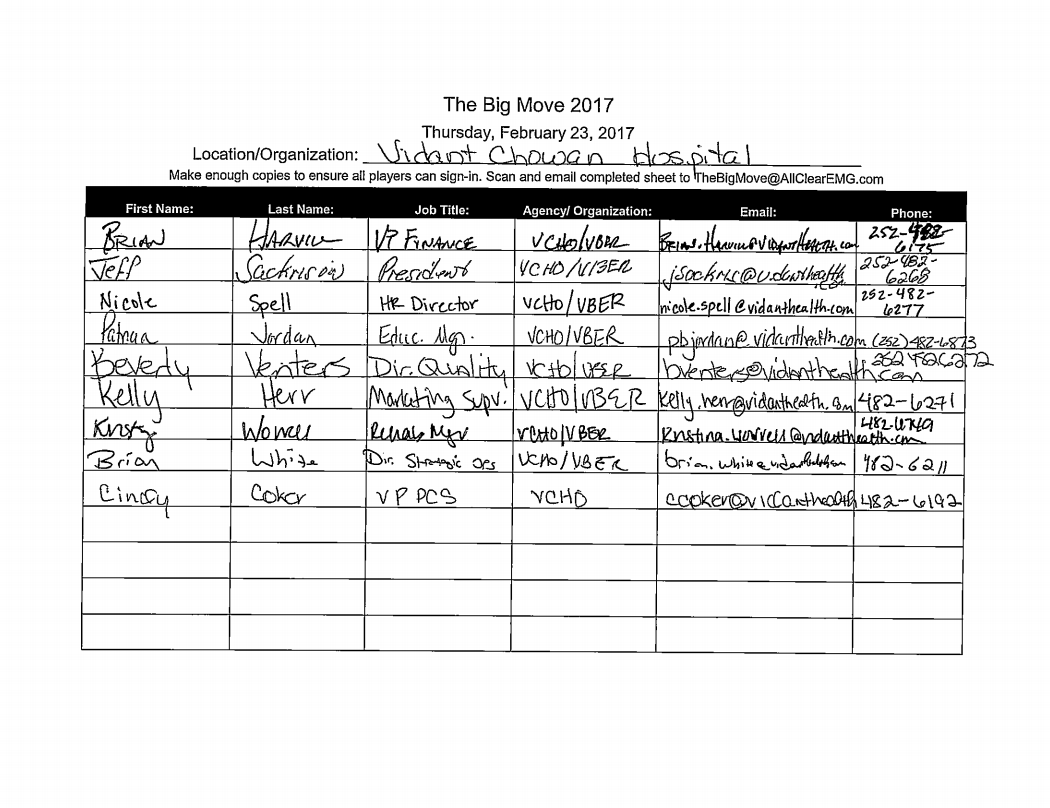 The Big Move 2017
Thursday, February 23, 2017
Location/Organization: Vidant Chowan Hospital
Make enough copies to ensure all players can sign-in. Scan and email completed sheet to TheBigMove@AllClearEMG.com
First Name: Last Name: Job Title: Agency/ Organization: Email: Phone:
BRIAN HARVILL VP FINANCE VCHO/VBER 252-482-6175
Jeff Sackrison President VCHO/VBER 252-482-6268
Nicole Spell HR Director VCHO/VBER nicole.spell@vidanthealth.com 252-482-6277
Patricia Jordan Educ. Mgr. VCHO/VBER pbjordan@vidanthealth.com (252)482-6873
Beverly Venters Dir. Quality VCHO/VBER bventers@vidanthealth.com 252 482 6272
Kelly Herr Marketing Supv. VCHO/VBER Kelly.herr@vidanthealth.com 482-6271
Kristy Worrell Rehab Mgr VCHO/VBER Kristina.Worrell@vidanthealth.com
Brian White Dir. Strategic Ops VCHO/VBER brian.white@vidanthealth.com 482-6211
Cindy Coker VP PCS VCHO ccoker@vidanthealth 482-6192